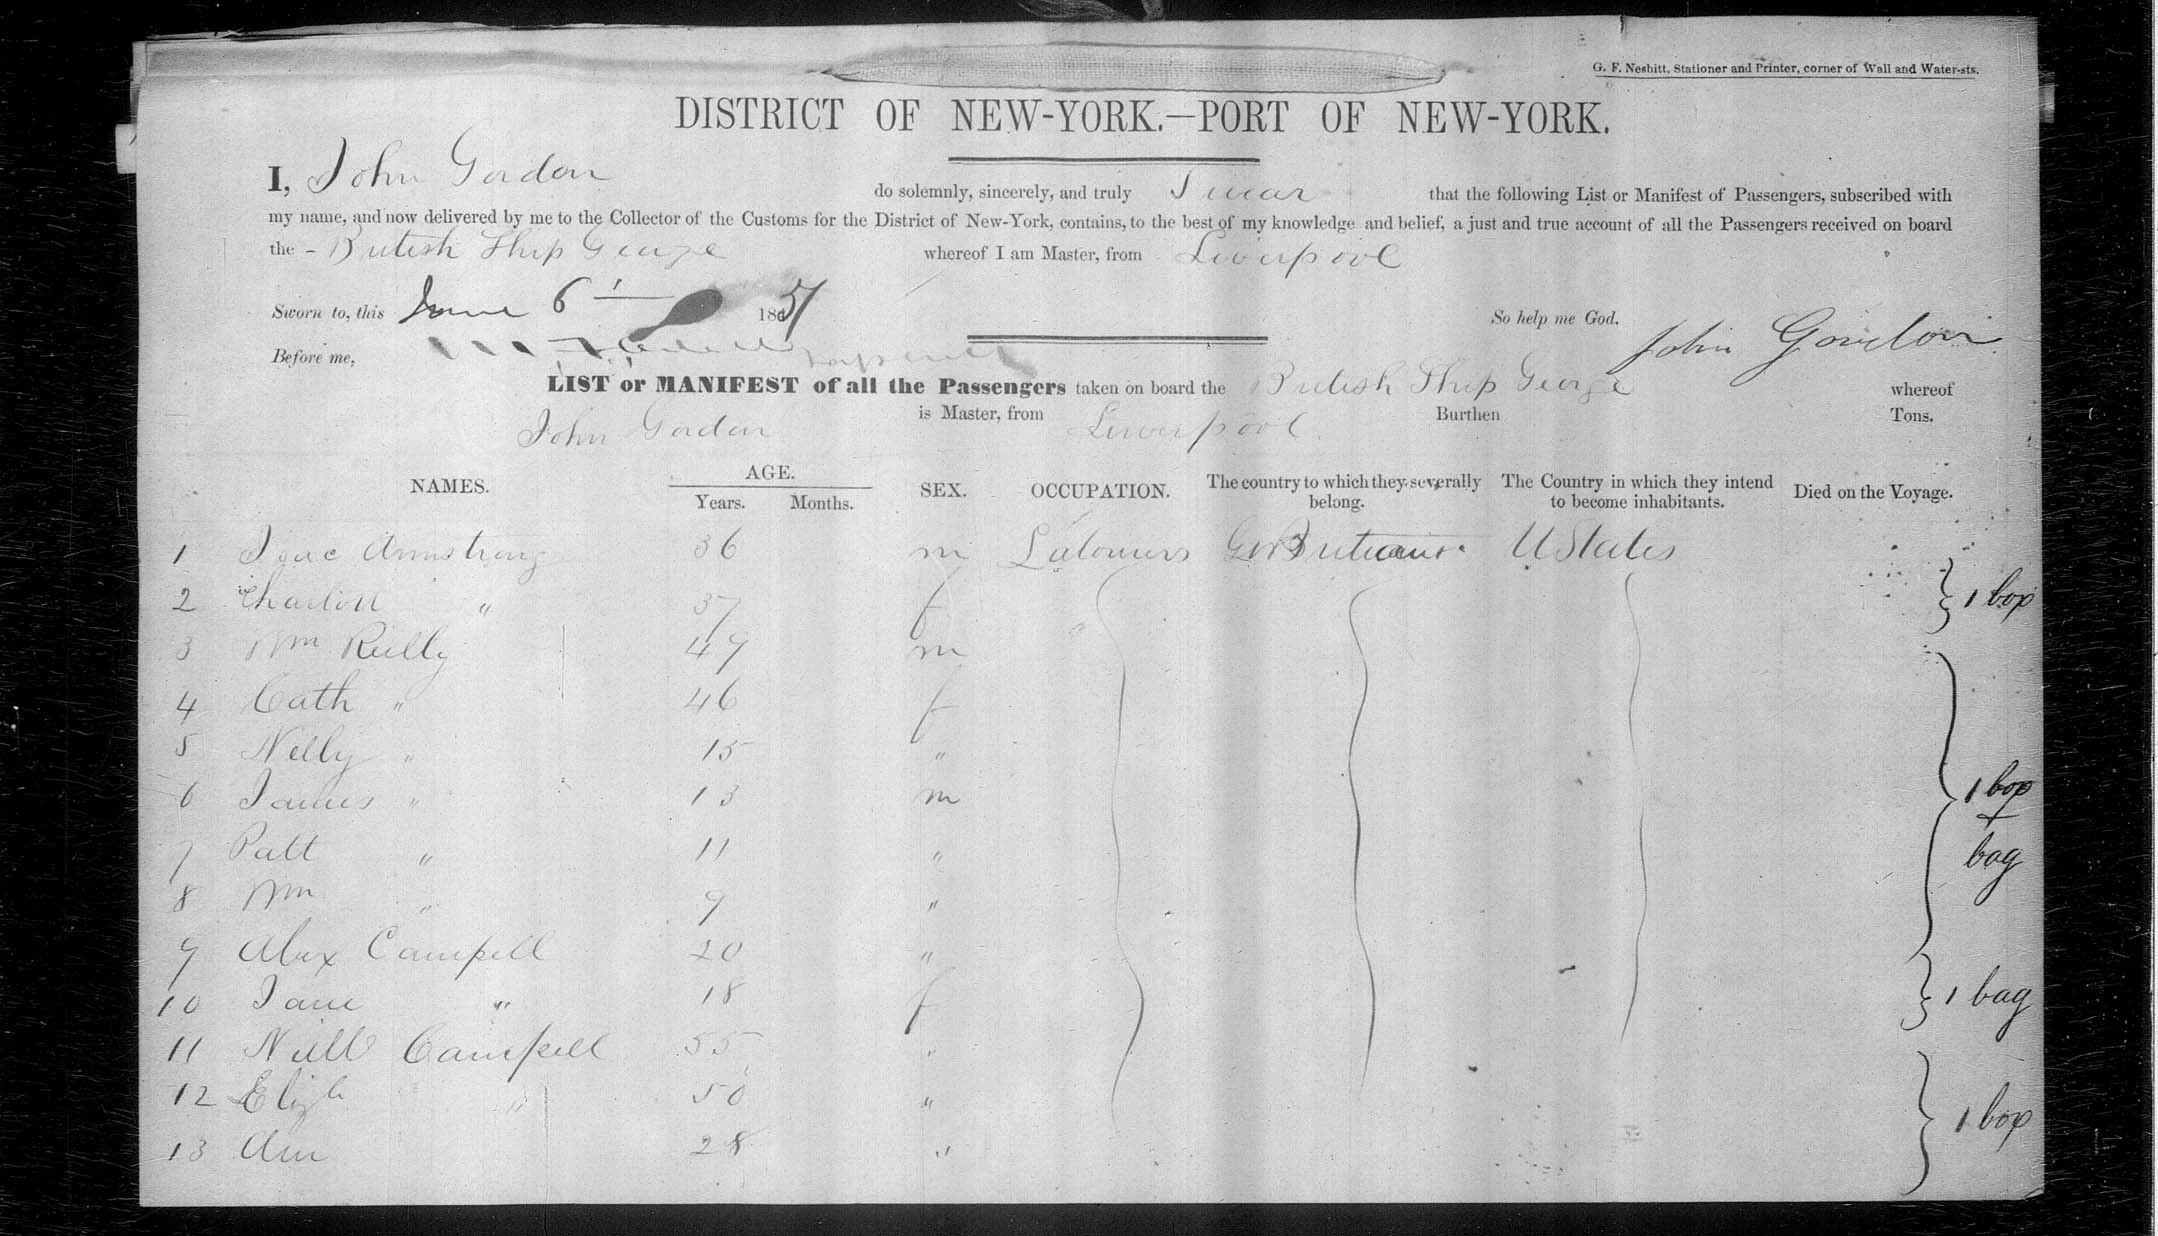 G. F. Nesbitt, Stationer and Printer, corner of Wall and Water-sts.
DISTRICT OF NEW-YORK.—PORT OF NEW-YORK.
I, John Gordon do solemnly, sincerely, and truly Swear that the following List or Manifest of Passengers, subscribed with
my name, and now delivered by me to the Collector of the Customs for the District of New-York, contains, to the best of my knowledge and belief, a just and true account of all the Passengers received on board
the - British Ship George whereof I am Master, from Liverpool
Sworn to, this June 6 1851 So help me God.
Before me, John Gordon
LIST or MANIFEST of all the Passengers taken on board the British Ship George whereof
John Gordon is Master, from Liverpool Burthen Tons.
NAMES. AGE. Years. Months. SEX. OCCUPATION. The country to which they severally belong. The Country in which they intend to become inhabitants. Died on the Voyage.
1 Isac Armstrong 36 m Labourers Gt Britain U States
2 " 37 f 1 box
3 Wm Reilly 49 m
4 Cath " 46 f
5 Nelly " 15 "
6 James " 13 m 1 box
7 Patt " 11 " + bag
8 Wm " 9 "
9 Alex Campell 20 "
10 Jane " 18 f 1 bag
11 Neill Campell 55 "
12 Elizh " 50 " 1 box
13 Ann 28 "